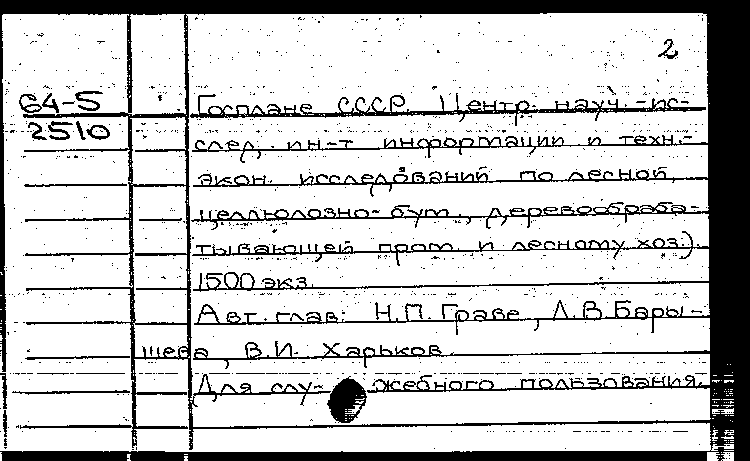 2
64-5
2510
Госплане СССР. Центр. науч.-ис-
след. ин-т информации и техн.-
экон. исследований по лесной,
целлюлозно-бум., деревообраба-
тывающей пром. и лесному хоз.).
1500 экз.
Авт. глав: Н.П. Граве, Л.В. Бары-
шева, В.И. Харьков.
Для слу-жебного пользования.